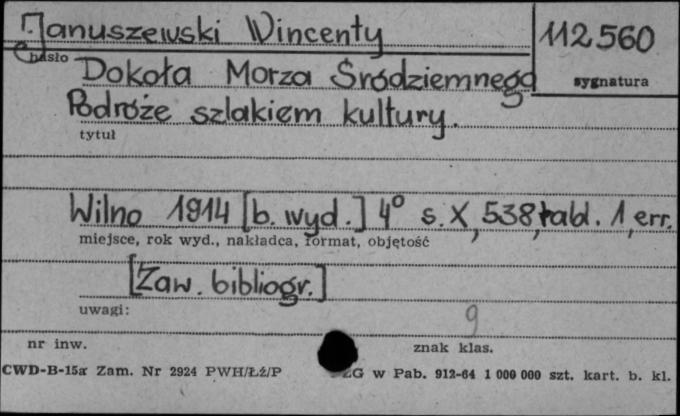 Januszewski Wincenty
112560
hasło
Dokoła Morza Śródziemnego
sygnatura
Podróże szlakiem kultury.
tytuł
Wilno 1914 [b. wyd.] 4° s. X, 538, tabl. 1, err.
miejsce, rok wyd., nakładca, format, objętość
[Zaw. bibliogr.]
uwagi:
9
nr inw.
znak klas.
CWD-B-15a Zam. Nr 2924 PWH/Łź/P
w Pab. 912-64 1 000 000 szt. kart. b. kl.